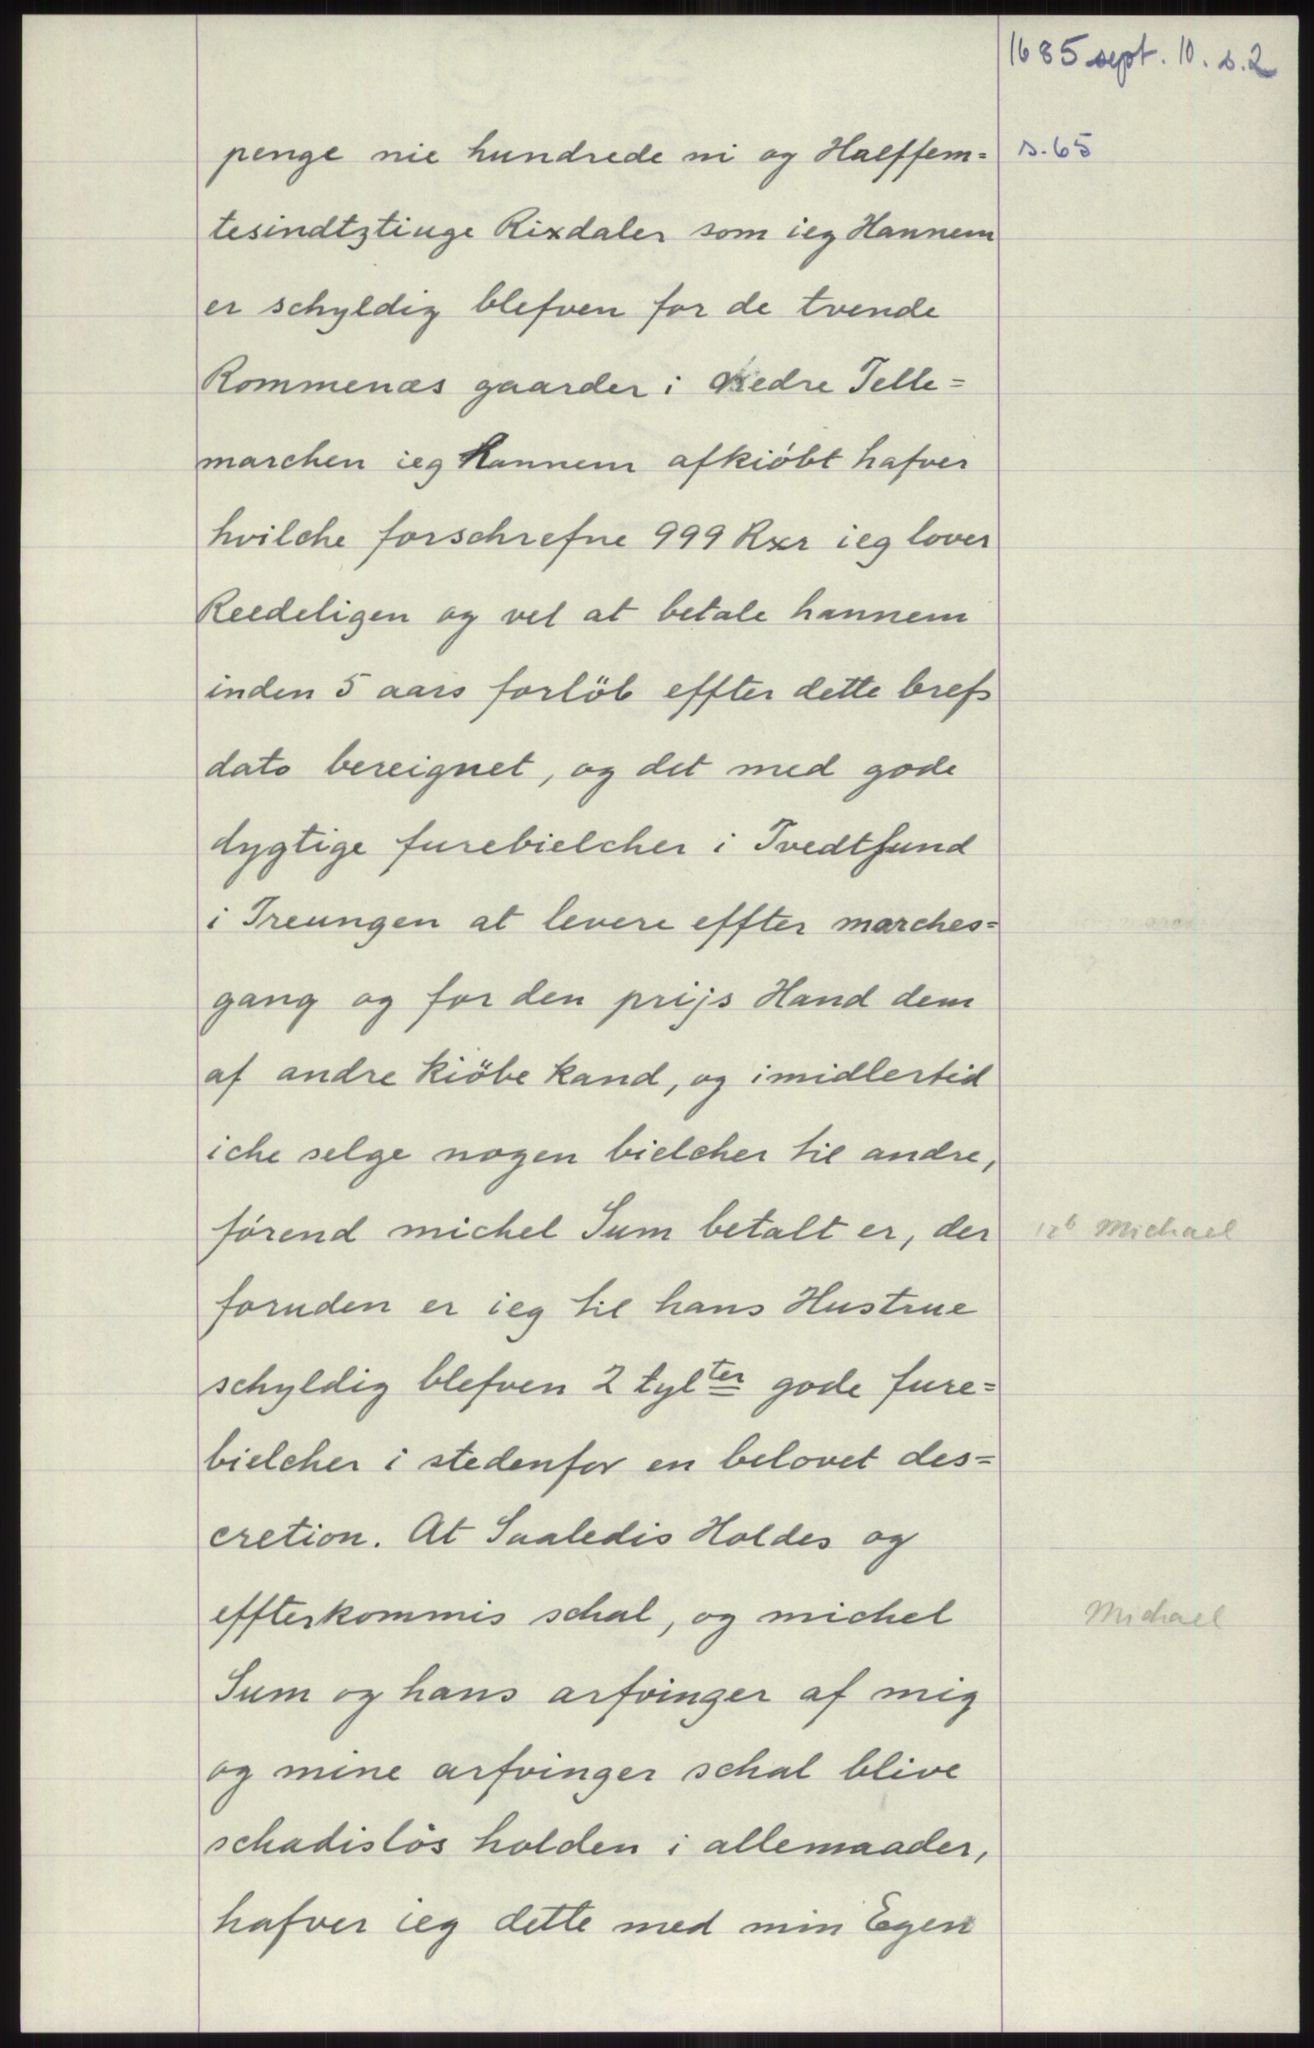 1685 sept. 10. s.2
penge nie hundrede ni og Halffem= s.65
tesindtztiuge Rixdaler som ieg Hannem
er schyldig blefven for de tvende
Rommenæs gaarder i nedre Telle=
marchen ieg Hannem afkiöbt hafver
hvilche forschrefne 999 Rxr ieg lover
Reedeligen og vel at betale hannem
inden 5 aars forlöb effter dette brefs
dato bereignet, og det med gode
dygtige furebielcher i Tvedtsund
i Treungen at levere effter marches=
gang og for den prijs Hand dem
af andre kiöbe kand, og imidlertid
iche selge nogen bielcher til andre,
förend michel Sum betalt er, der Michael
foruden er ieg til hans Hustrue
schyldig blefven 2 tylter gode fure=
bielcher i stedenfor en belovet des=
cretion. At Saaledis Holdes og
effterkommis schal, og michel Michael
Sum og hans arfvinger af mig
og mine arfvinger schal blive
schadislös holden i allemaader,
hafver ieg dette med min Egen